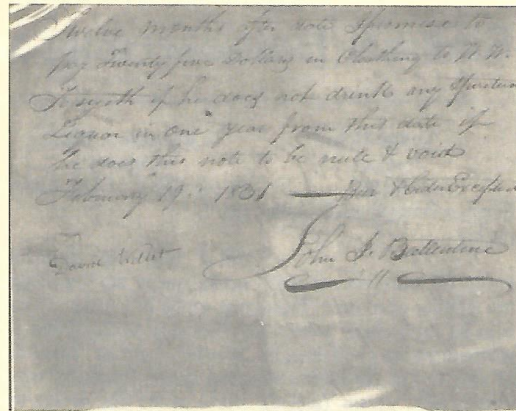 Twelve months after date I promise to
pay Twenty five Dollars in Clothing to N. N.
Forsyth if he does not drink any
Liquor in one year from this date if
he does this note to be nule & void
February 19th 1831 & Cider Excepted
David
John J. Ballentine